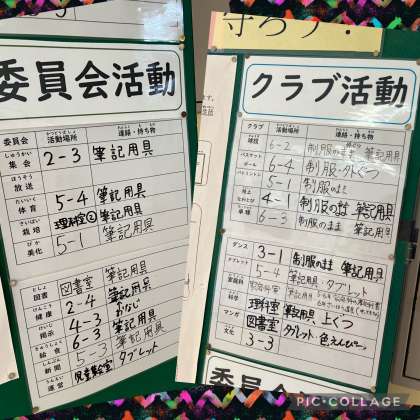 守ろう！
委員会活動
委員会 活動場所 連絡・持ち物
集会 2-3 筆記用具
放送
体育 5-4 筆記用具
栽培 理科室② 筆記用具
美化 5-1 筆記用具
図書 図書室 筆記用具
健康 2-4 筆記用具
掲示 4-3 おなじ
給食 6-3 筆記用具
新聞 5-3 筆記用具
運営 児童会室 タブレット
クラブ活動
クラブ 活動場所 連絡・持ち物
6-2 制服のまま 筆記用具
バスケットボール 6-4 制服・外くつ
バドミントン 5-1 制服のまま
陸上 4-1 制服のまま 筆記用具
卓球 6-3 制服のまま 筆記用具
ダンス 3-1 制服のまま 筆記用具
タブレット 5-4 筆記用具・タブレット
家庭科 家庭科室 筆記用具
科学 理科室 筆記用具 上ぐつ
マンガ 図書室 タブレット 色えんぴつ
文化 3-3
PIC・COLLAGE